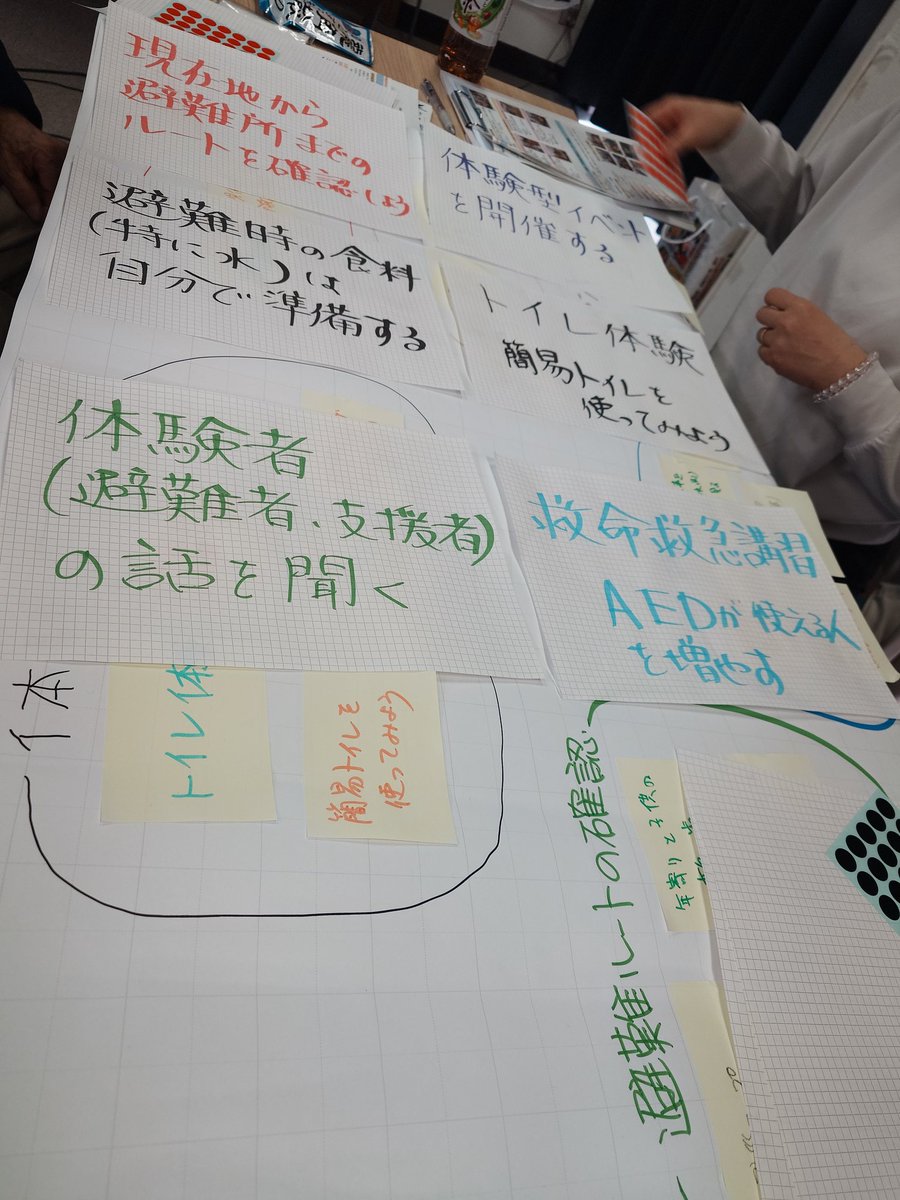 現在地から
避難所までの
ルートを確認しよう
避難時の食料
(特に水)は
自分で準備する
体験型イベント
を開催する
トイレ体験
簡易トイレを
使ってみよう
体験者
(避難者、支援者)
の話を聞く
救命救急講習
AEDが使える人
を増やす
体
トイレ体
簡易トイレを
使ってみよう
避難ルートの確認
年寄りと子供の